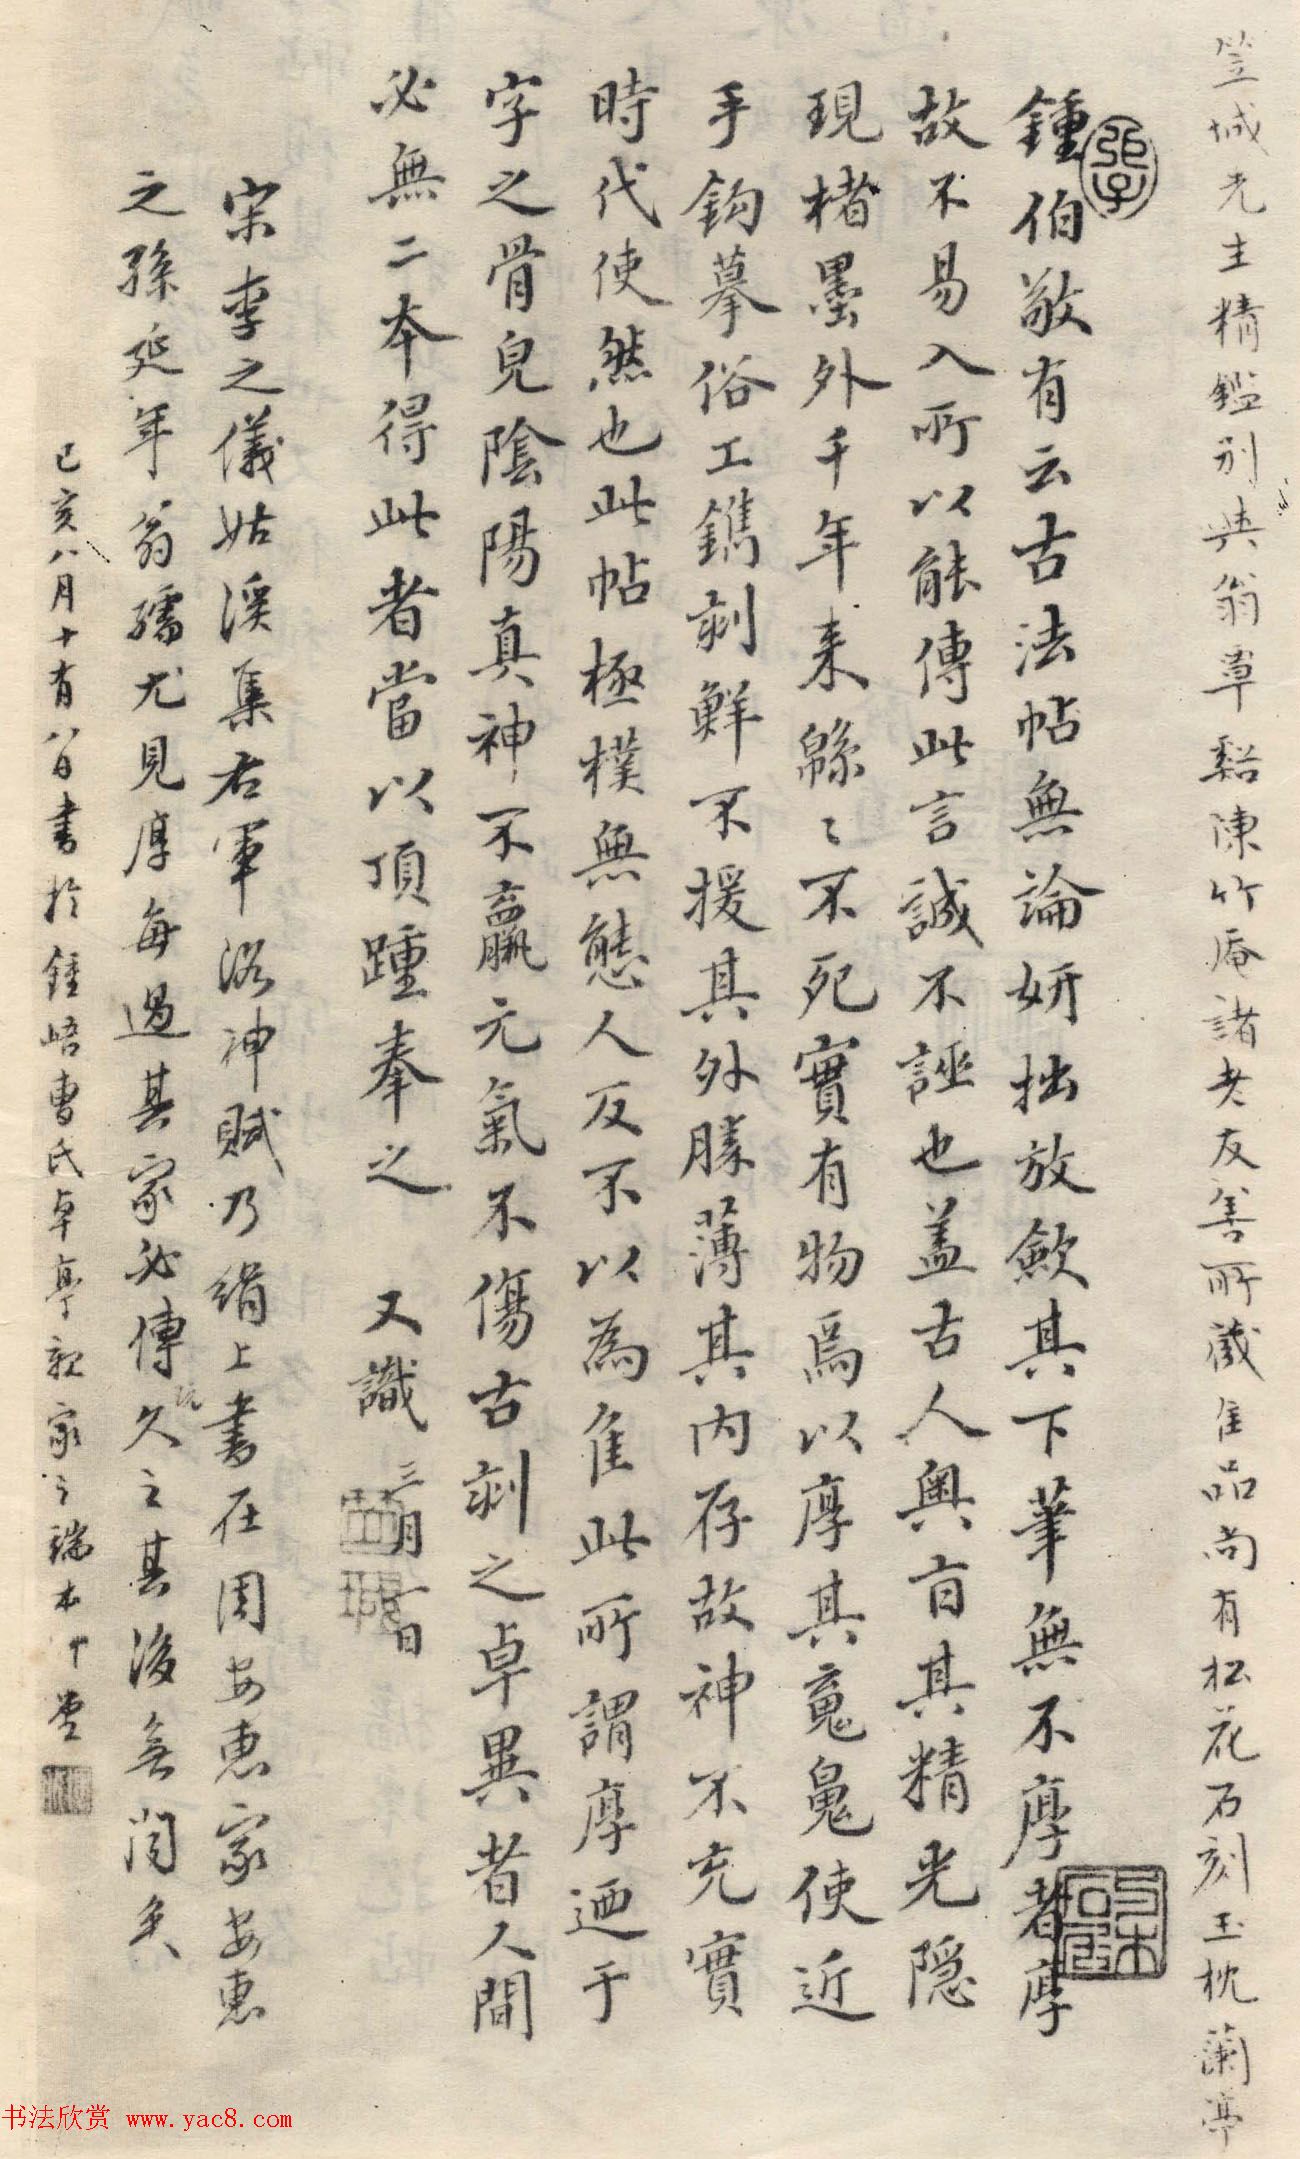 笠城先生精鑑別與翁覃谿陳竹庵諸老友善所藏佳品尚有松花石刻玉枕蘭亭
鍾伯敬有云古法帖無論妍拙放歛其下筆無不厚者厚
故不易入所以能傳此言誠不誣也盖古人奧旨其精光隱
現楮墨外千年来緜〻不死實有物焉以厚其䰟鬼使近
手鈎摹俗工鐫刻鮮不援其外勝薄其内存故神不充實
時代使然也此帖極樸無態人反不以為隹此所謂厚迺于
字之骨皃陰陽真神不羸元氣不傷古刻之卓異者人間
必無二本得此者當以頂踵奉之 又識 三月一日
宋李之儀姑溪集右軍洛神賦乃絹上書在周安惠家安惠
之孫延年翁孺尤見厚每過其家必傳玩久之其後無聞矣
己亥八月十有八日書於鍾悟曹氏卓亭親家之瑞木中堂
书法欣赏 www.yac8.com